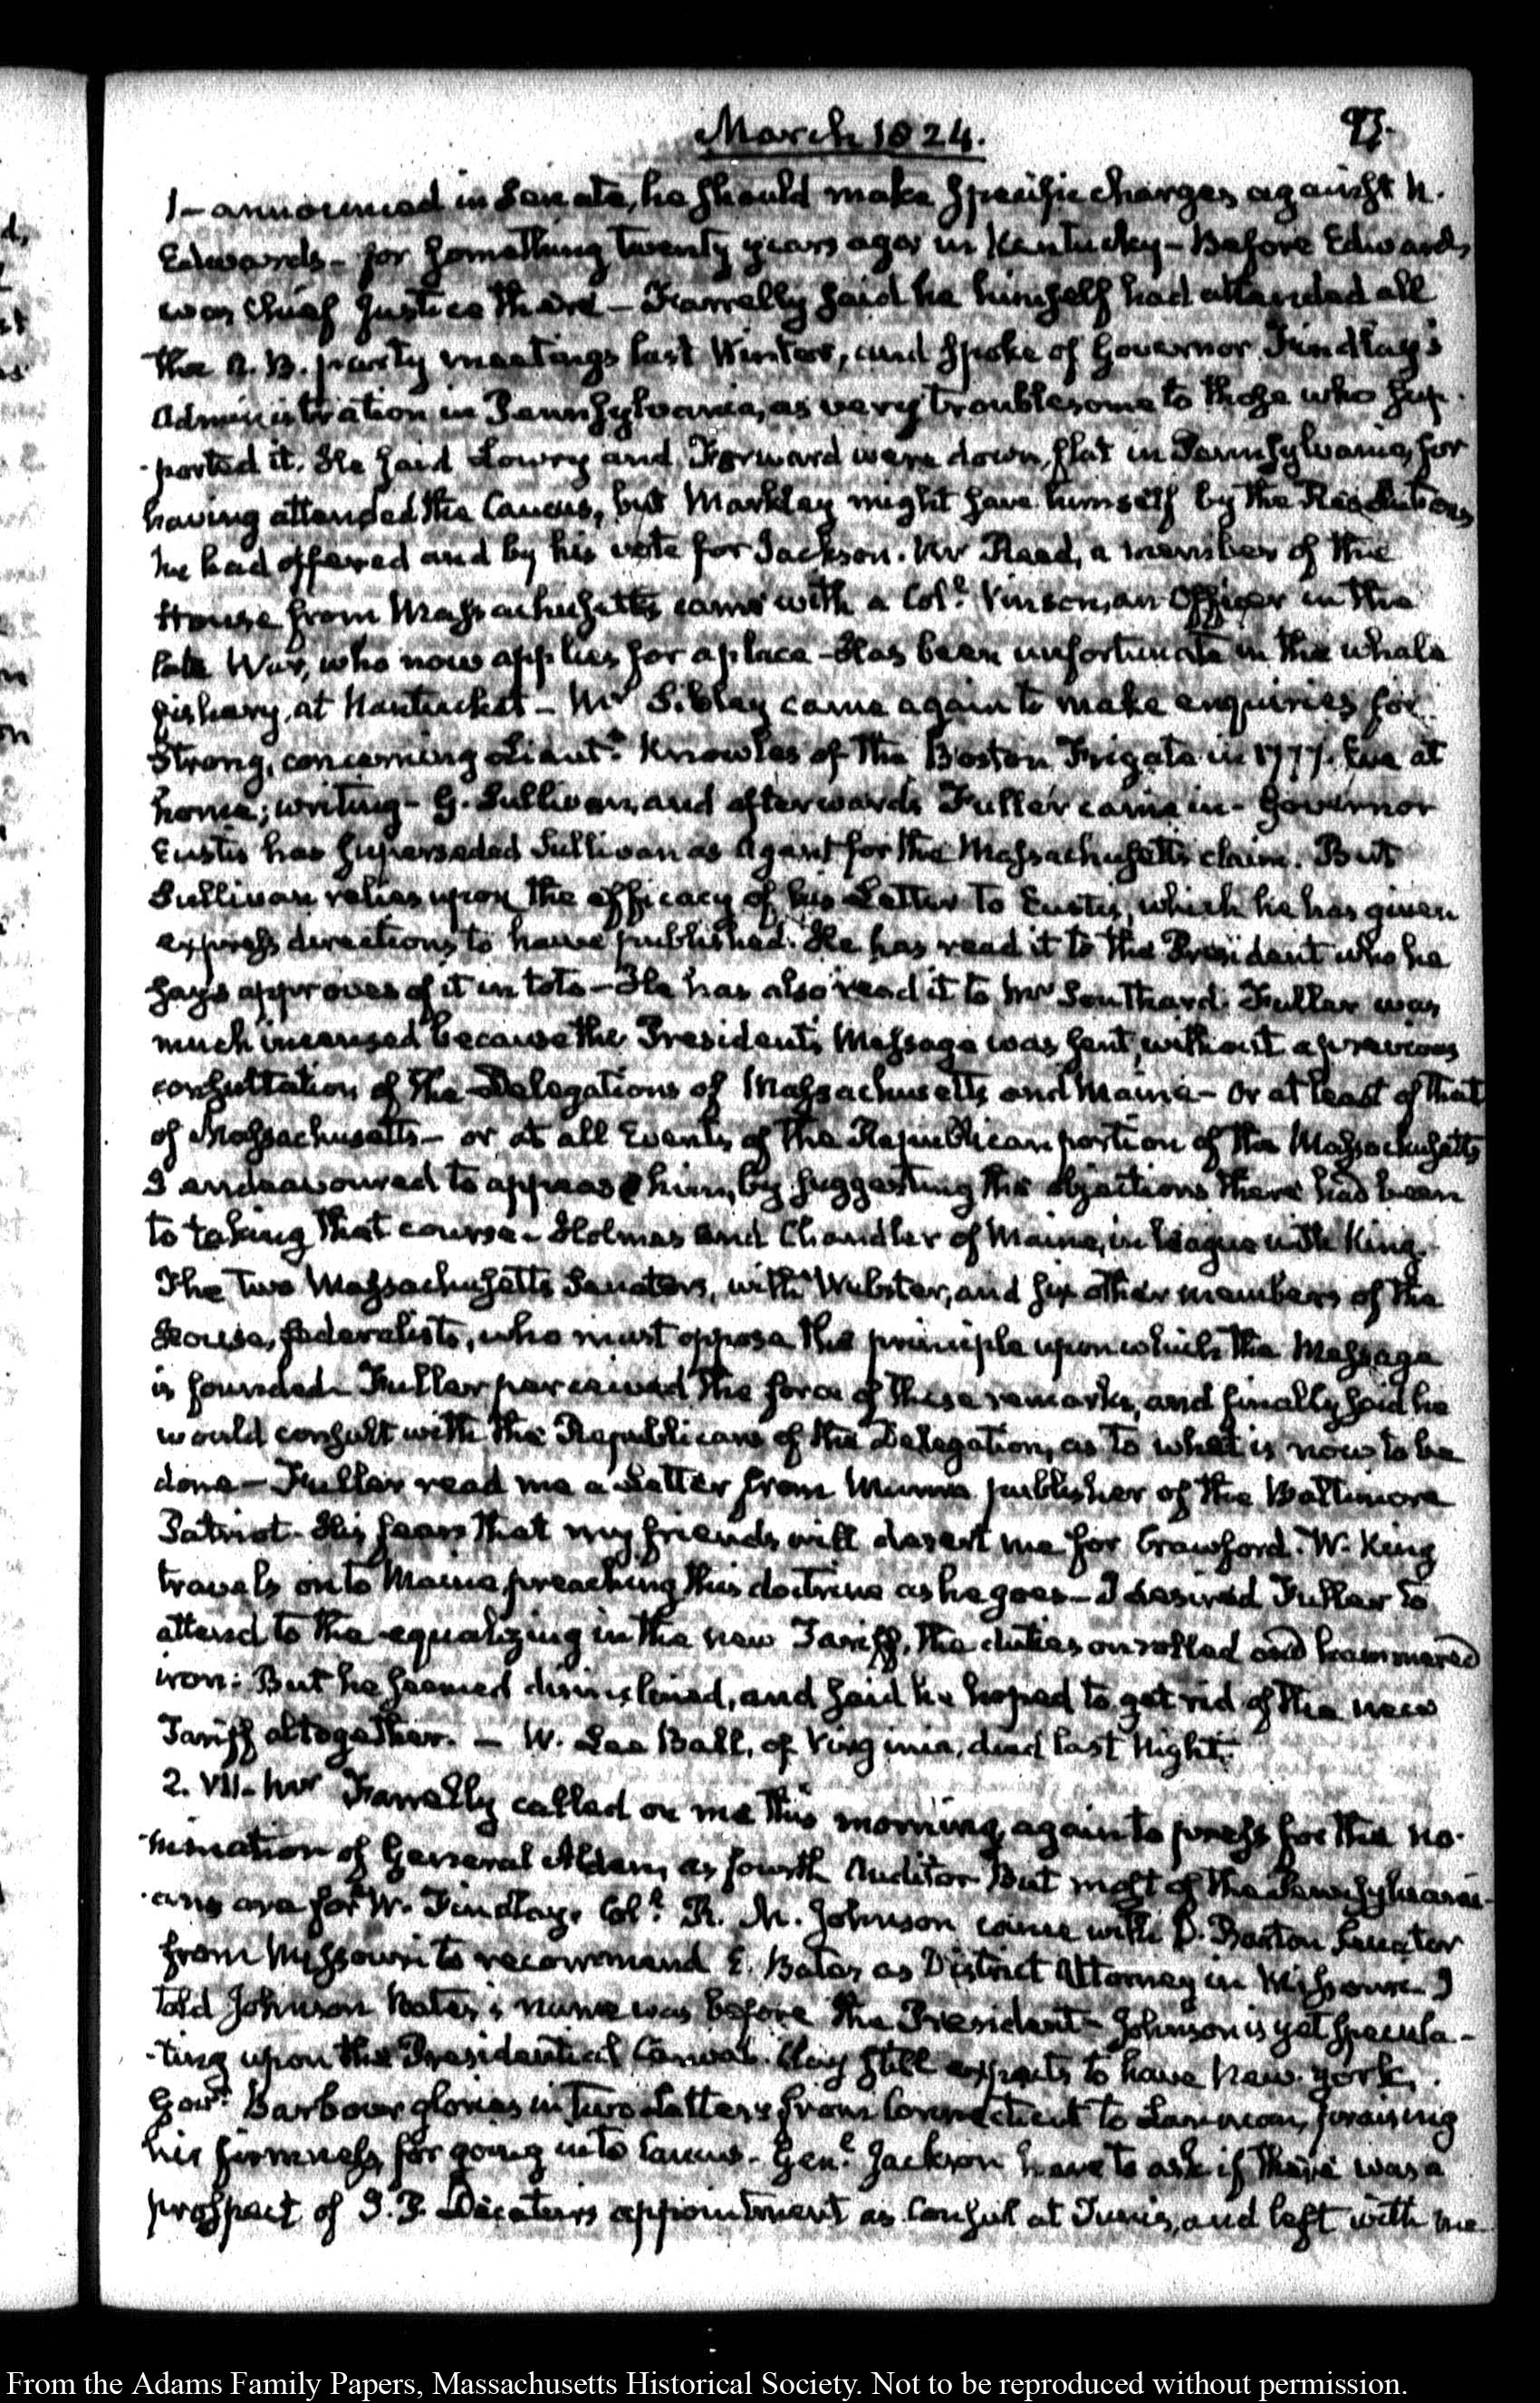 March 1824.
93.
1 — announced in Senate, he should make specific charges against N.
Edwards — for something twenty years ago in Kentucky — Before Edwards
was Chief Justice there — Farrelly said he himself had attended all
the A. B. party meetings last Winter, and spoke of Governor Findlay's
Administration in Pennsylvania, as very troublesome to those who sup-
-ported it. He said Lowry and Forward were down flat in Pennsylvania, for
having attended the Caucus, but Markley might save himself by the Resolutions
he had offered and by his vote for Jackson. Mr Reed, a member of the
House from Massachusetts came with a Coll. Vinson, an Officer in the
late War, who now applies for a place — Has been unfortunate in the whale
fishery, at Nantucket — Mr Sibley came again to make enquiries for
Strong, concerning Lieutt. Knowles of the Boston Frigate in 1777. Eve at
home; writing — G. Sullivan, and afterwards Fuller came in — Governor
Eustis has superseded Sullivan as Agent for the Massachusetts claim. But
Sullivan relies upon the efficacy of his Letter to Eustis, which he has given
express directions to have published. He has read it to the President who he
says approves of it in toto — He has also read it to Mr Southard. Fuller was
much incensed because the President's Message was sent, without a previous
consultation of the Delegations of Massachusetts and Maine — or at least of that
of Massachusetts — or at all Events of the Republican portion of the Massachusetts
I endeavoured to appease him, by suggesting the objections there had been
to taking that course — Holmes and Chandler of Maine, in league with King.
The two Massachusetts Senators, with Webster, and six other members of the
House, federalists, who must oppose the principle upon which the Message
is founded — Fuller perceived the force of these remarks, and finally said he
would consult with the Republicans of the Delegation, as to what is now to be
done — Fuller read me a Letter from Munroe publisher of the Baltimore
Patriot — His fears that my friends will desert me for Crawford. W. King
travels on to Maine preaching this doctrine as he goes — I desired Fuller to
attend to the equalizing in the new Tariff, the duties on rolled and hammered
iron: But he seemed disinclined, and said he hoped to get rid of the new
Tariff altogether. — W. Lee Ball, of Virginia, died last Night.
2. VII. Mr Farrelly called on me this morning, again to press for the no-
-mination of General Alden, as fourth Auditor — But most of the Pennsylvani-
-ans are for W. Findlay. Coll. R. M. Johnson came with D. Barton Senator
from Missouri to recommend E. Bates as District Attorney in Missouri — I
told Johnson Bates's name was before the President — Johnson is yet specula-
-ting upon the Presidential Canvas. Clay still expects to have New York.
Govr. Barbour glories in two Letters from Connecticut to Lanman, praising
his firmness, for going into Caucus — Genl. Jackson here to ask if there was a
prospect of J. P. Decatur's appointment as Consul at Tunis, and left with me
From the Adams Family Papers, Massachusetts Historical Society. Not to be reproduced without permission.